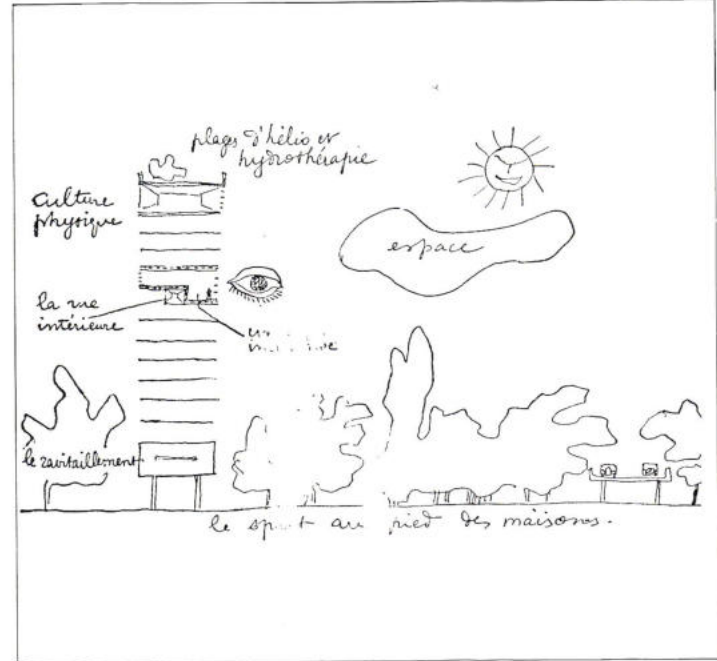 plages d'hélio et
hydrothérapie
culture
physique
espace
la rue
intérieure
le ravitaillement
le sport au pied des maisons.